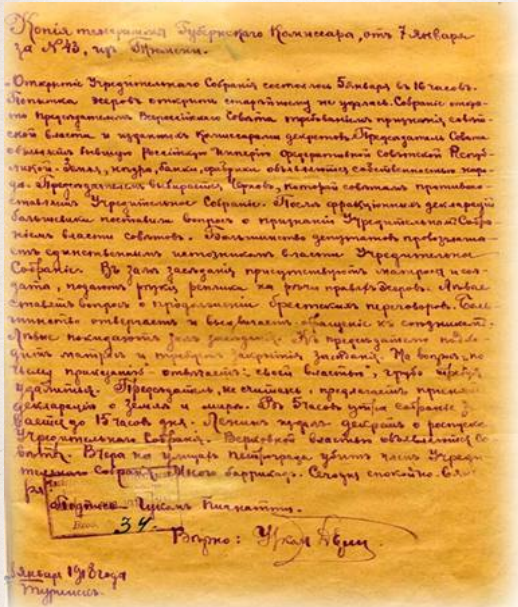 Копія телеграммы Губернскаго Комиссара, отъ 7 Января
за №43, из Тюмени.
Открытіе Учредительнаго Собранія состоялось 5 Января въ 16 часовъ.
Попытка эсеровъ открыть старѣйшему не удалась. Собраніе откры-
то предсѣдателемъ Всероссійскаго Совѣта требованіемъ признанія совѣт-
ской власти и изданныхъ Комиссарами декретовъ. Предсѣдатель Совѣта
объявляетъ бывшую Россійскую Имперію Федеративной совѣтской Респуб-
ликой. Земля, нѣдра, банки, фабрики объявляются собственностью наро-
да. Предсѣдателемъ выбирается Черновъ, который совѣтамъ противопо-
ставляетъ Учредительное Собраніе. Послѣ фракціонныхъ деклараций
большевики поставили вопросъ о признаніи Учредительнымъ Собра-
ніемъ власти совѣтовъ. Большинство депутатовъ провозглаша-
етъ единственнымъ источникомъ власти Учредительное
Собраніе. Въ залѣ засѣданія присутствуютъ матросы и сол-
дата, подаютъ рѣзкія реплики на рѣчи правыхъ эсеровъ. Лѣвые
ставятъ вопросъ о продолженіи брестскихъ переговоровъ. Боль-
шинство отвергаетъ и выдвигаетъ обращеніе къ союзникамъ.
Лѣвые покидаютъ залъ засѣданія. Къ предсѣдателю подхо-
дитъ матросъ и требуетъ закрытія засѣданія. На вопросъ, по
чьему приказанію отвѣчаетъ: своей властью, грубо требуя
удалиться. Предсѣдатель, не считаясь, предлагаетъ принять
декларацію о землѣ и мирѣ. Въ 5 часовъ утра собраніе за-
кр<br>ывается до 15 часовъ дня. Ленинъ издалъ декретъ о роспускѣ
Учредительнаго Собранія. Верховной властью объявляются Со-
вѣты. Вчера на улицахъ петрограда убитъ членъ Учреди-
тельнаго Собранія. Много баррикадъ. Сегодня спокойно.
Подпись
34.
Вѣрно:
Января 1918 года
Туринскъ.